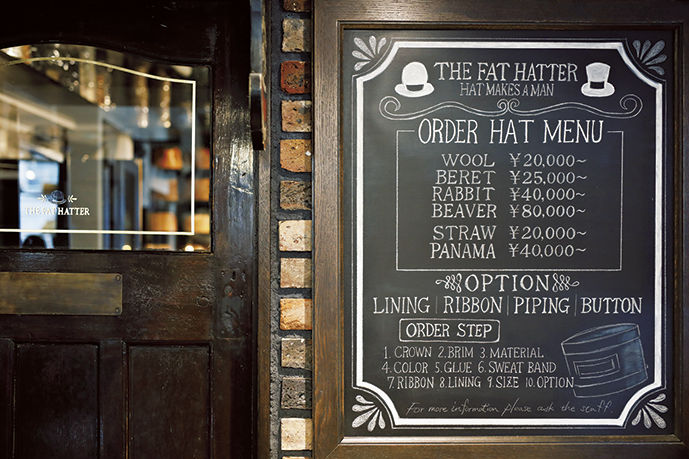 THE FAT HATTER
THE FAT HATTER
HAT MAKES A MAN
ORDER HAT MENU
WOOL ¥20,000~
BERET ¥25,000~
RABBIT ¥40,000~
BEAVER ¥80,000~
STRAW ¥20,000~
PANAMA ¥40,000~
OPTION
LINING | RIBBON | PIPING | BUTTON
ORDER STEP
1. CROWN 2. BRIM 3. MATERIAL
4. COLOR 5. GLUE 6. SWEAT BAND
7. RIBBON 8. LINING 9. SIZE 10. OPTION
For more information please ask the staff.